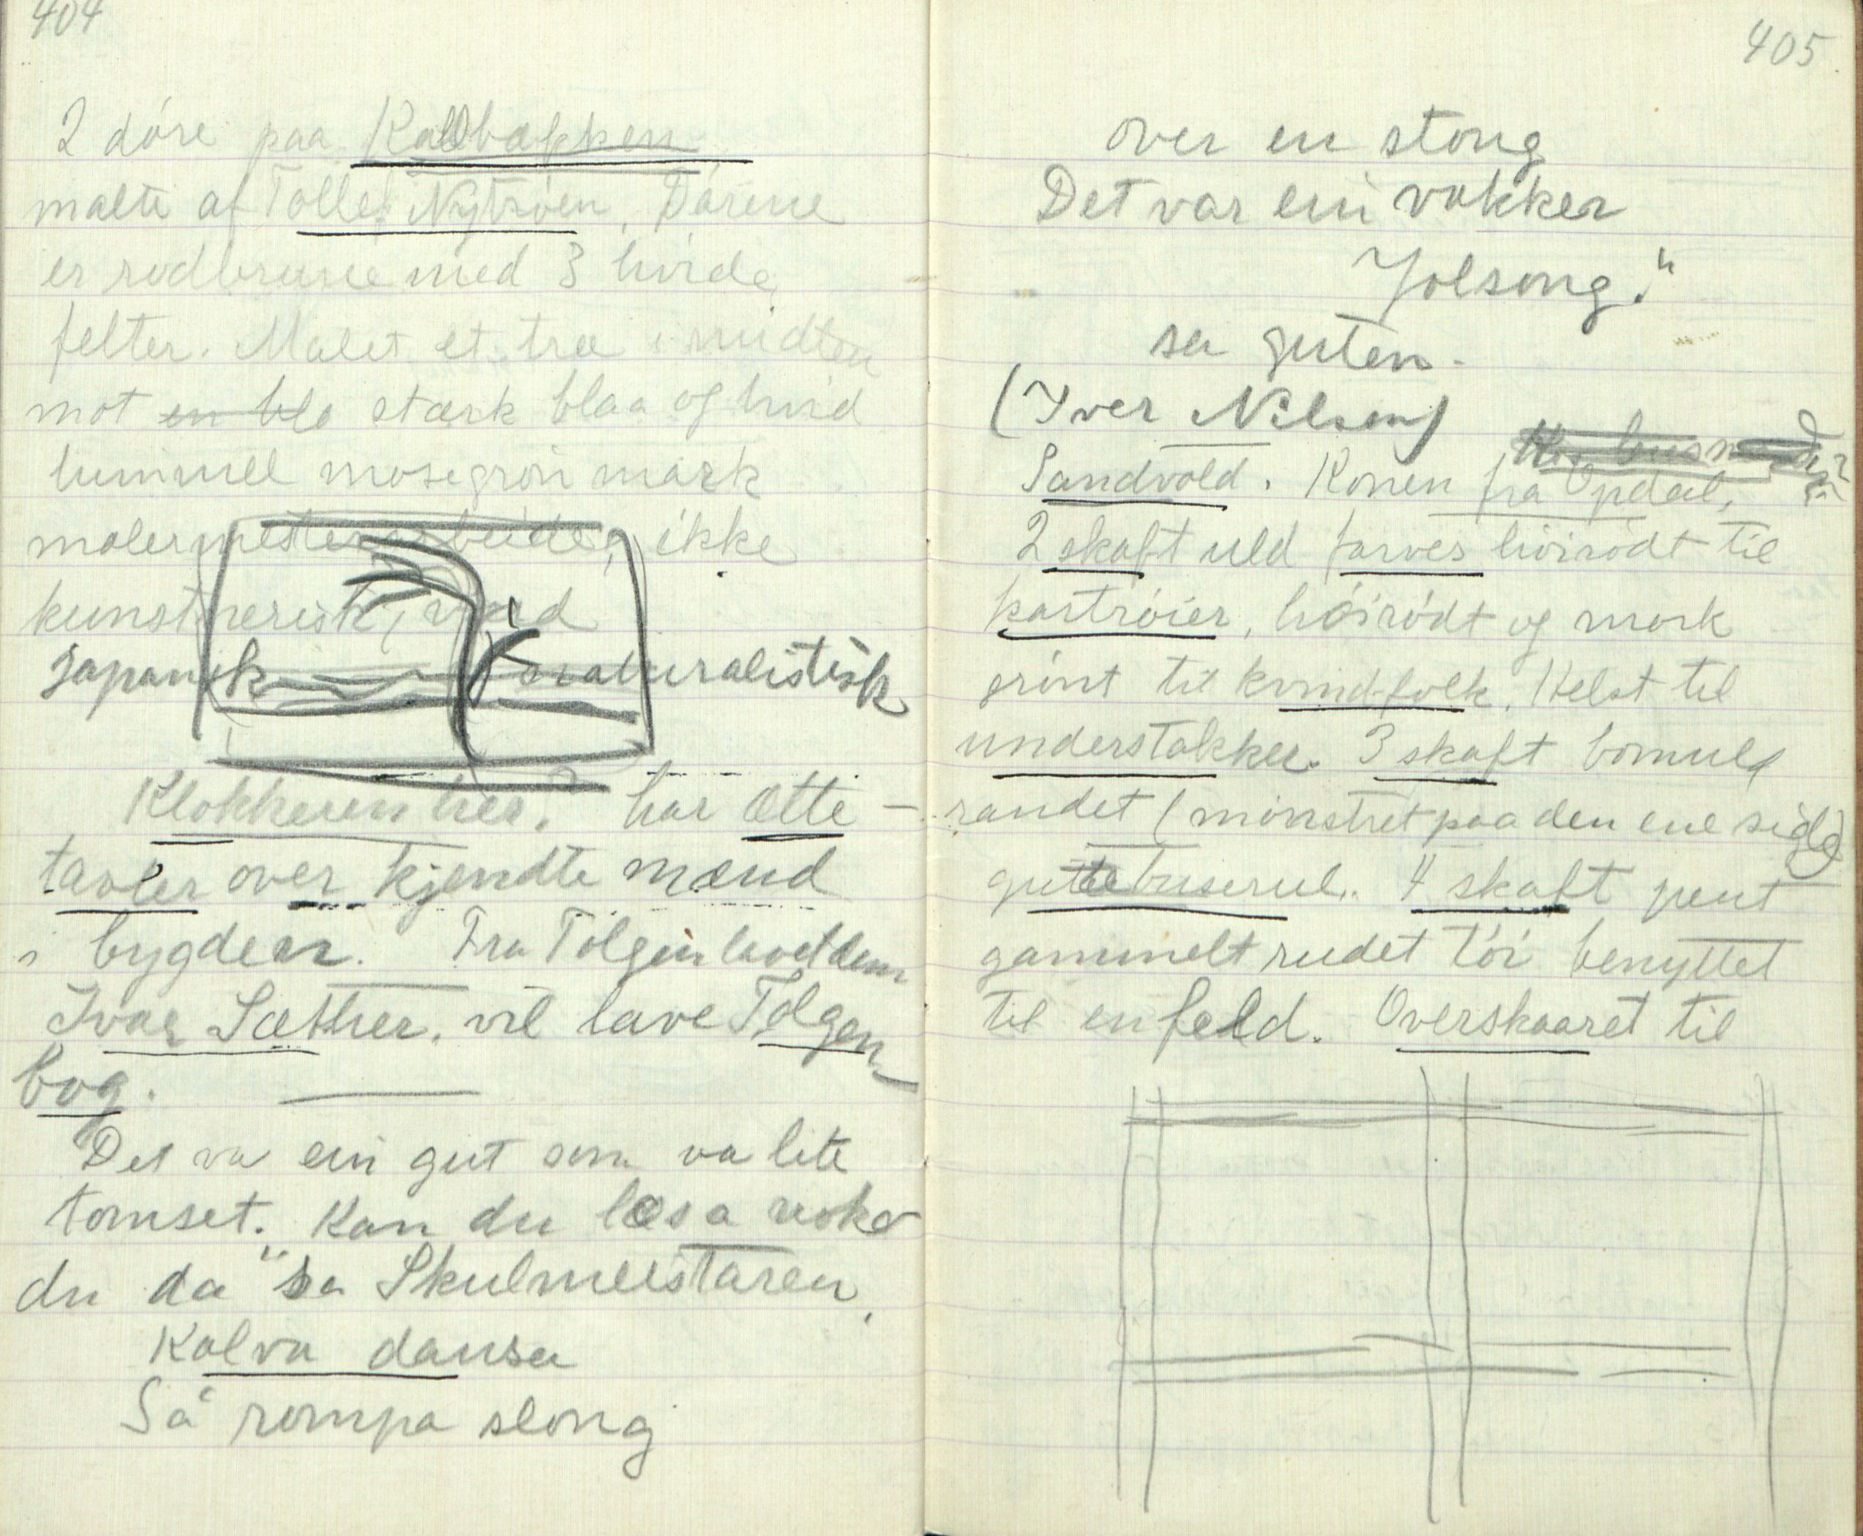 404
2 döre paa Kalbækken
malte af Tolle Nytrøen. Dørene
er rødbrune med 3 hvide
felter. Malet et træ i midten
mot en blo stærk blaa og hvid
himmel mosegrøn mark
malermesterarbeide, ikke
kunstnerisk,
japansk naturalistisk
Klokkeren her. har ætte-
tavler over kjendte mænd
i bygden. Fra Tolgen lavet dem
Ivar Sæther. vil lave Tolgen
bog.
Det va ein gut som va lite
tomset. Kan du læsa
du da" sa Skulmeistaren,
Kalva dansa
Så rompa slong
405.
over en stong
Det var ein vakker
Jolsong."
sa guten.
(Iver Nilsen)
Sandvold. Konen fra Opdal,
2 skaft uld farves höirödt til
kartröier, höirödt og mork
grönt til kvindfolk. Helst til
understakker. 3 skaft bomuld
randet (mönstret paa den ene side)
guttebuserul. 4 skaft pent
gammelt rudet töi benyttet
til en feld. Overskaaret til